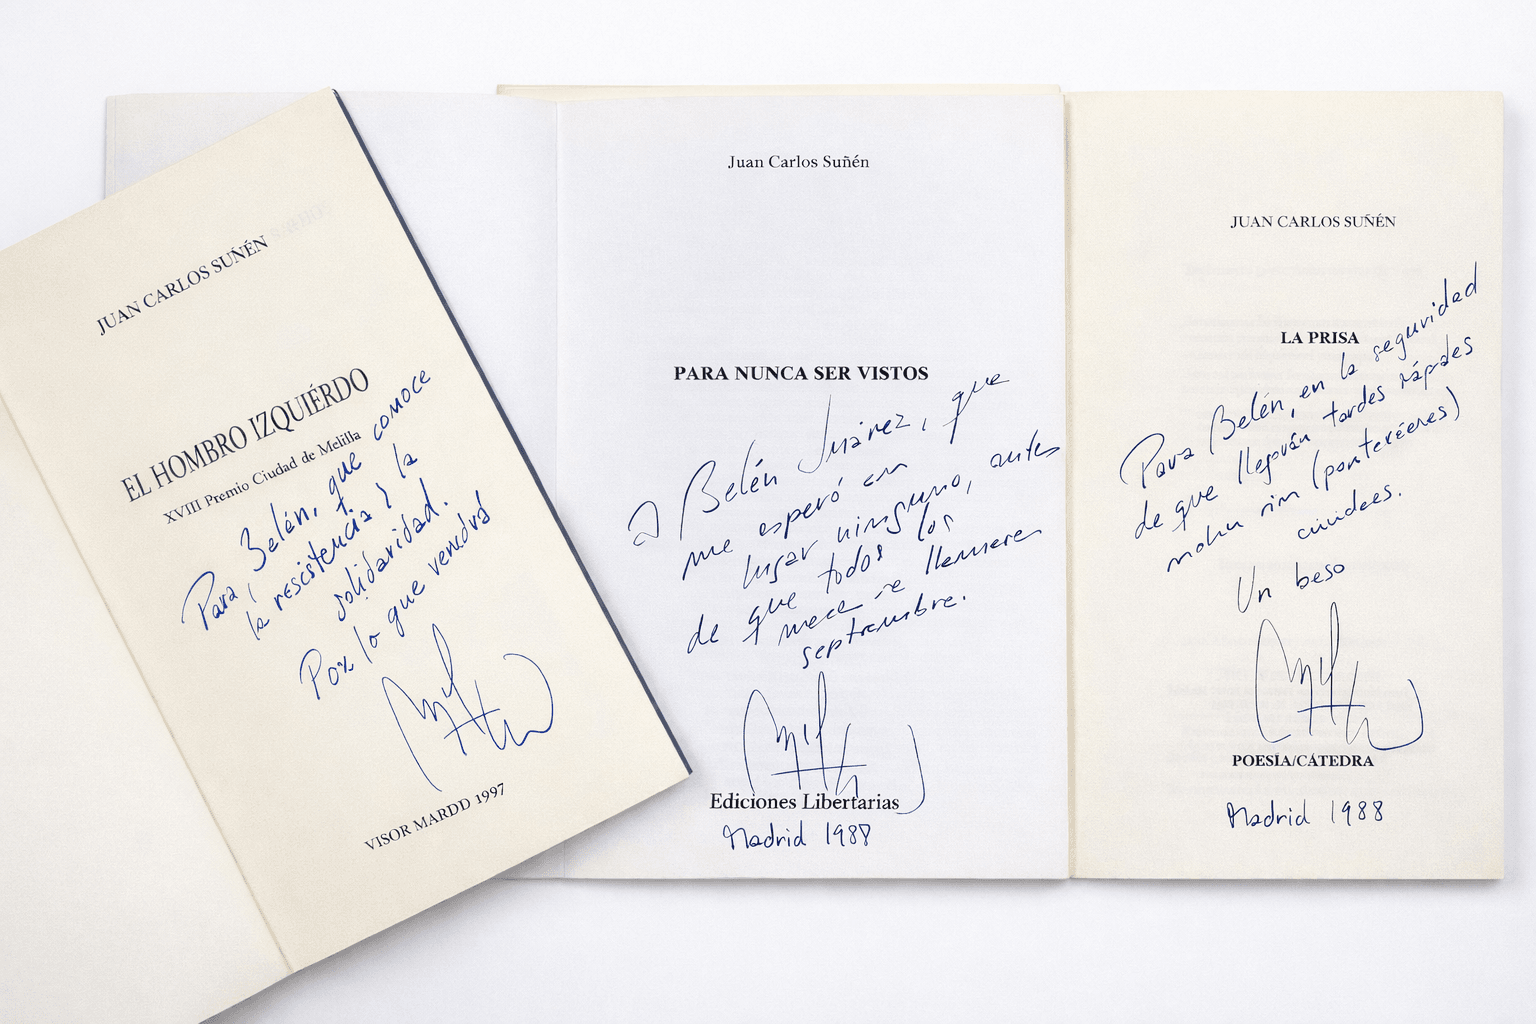 JUAN CARLOS SUÑÉN
EL HOMBRO IZQUIÉRDO
XVIII Premio Ciudad de Melilla
Para, Belén, que conoce
la rescistencia y la
solidaridad.
Por lo que vendrá
VISOR MARDD 1997
Juan Carlos Suñén
PARA NUNCA SER VISTOS
a Belén Juárez, que
me esperó en
lugar ninguno, antes
de que todos los
se llamaran
septiembre.
Ediciones Libertarias
Madrid 1988
JUAN CARLOS SUÑÉN
LA PRISA
Para Belén, en la seguridad
de que llegrán tardes rápdes
Un beso
POESÍA/CÁTEDRA
Madrid 1988